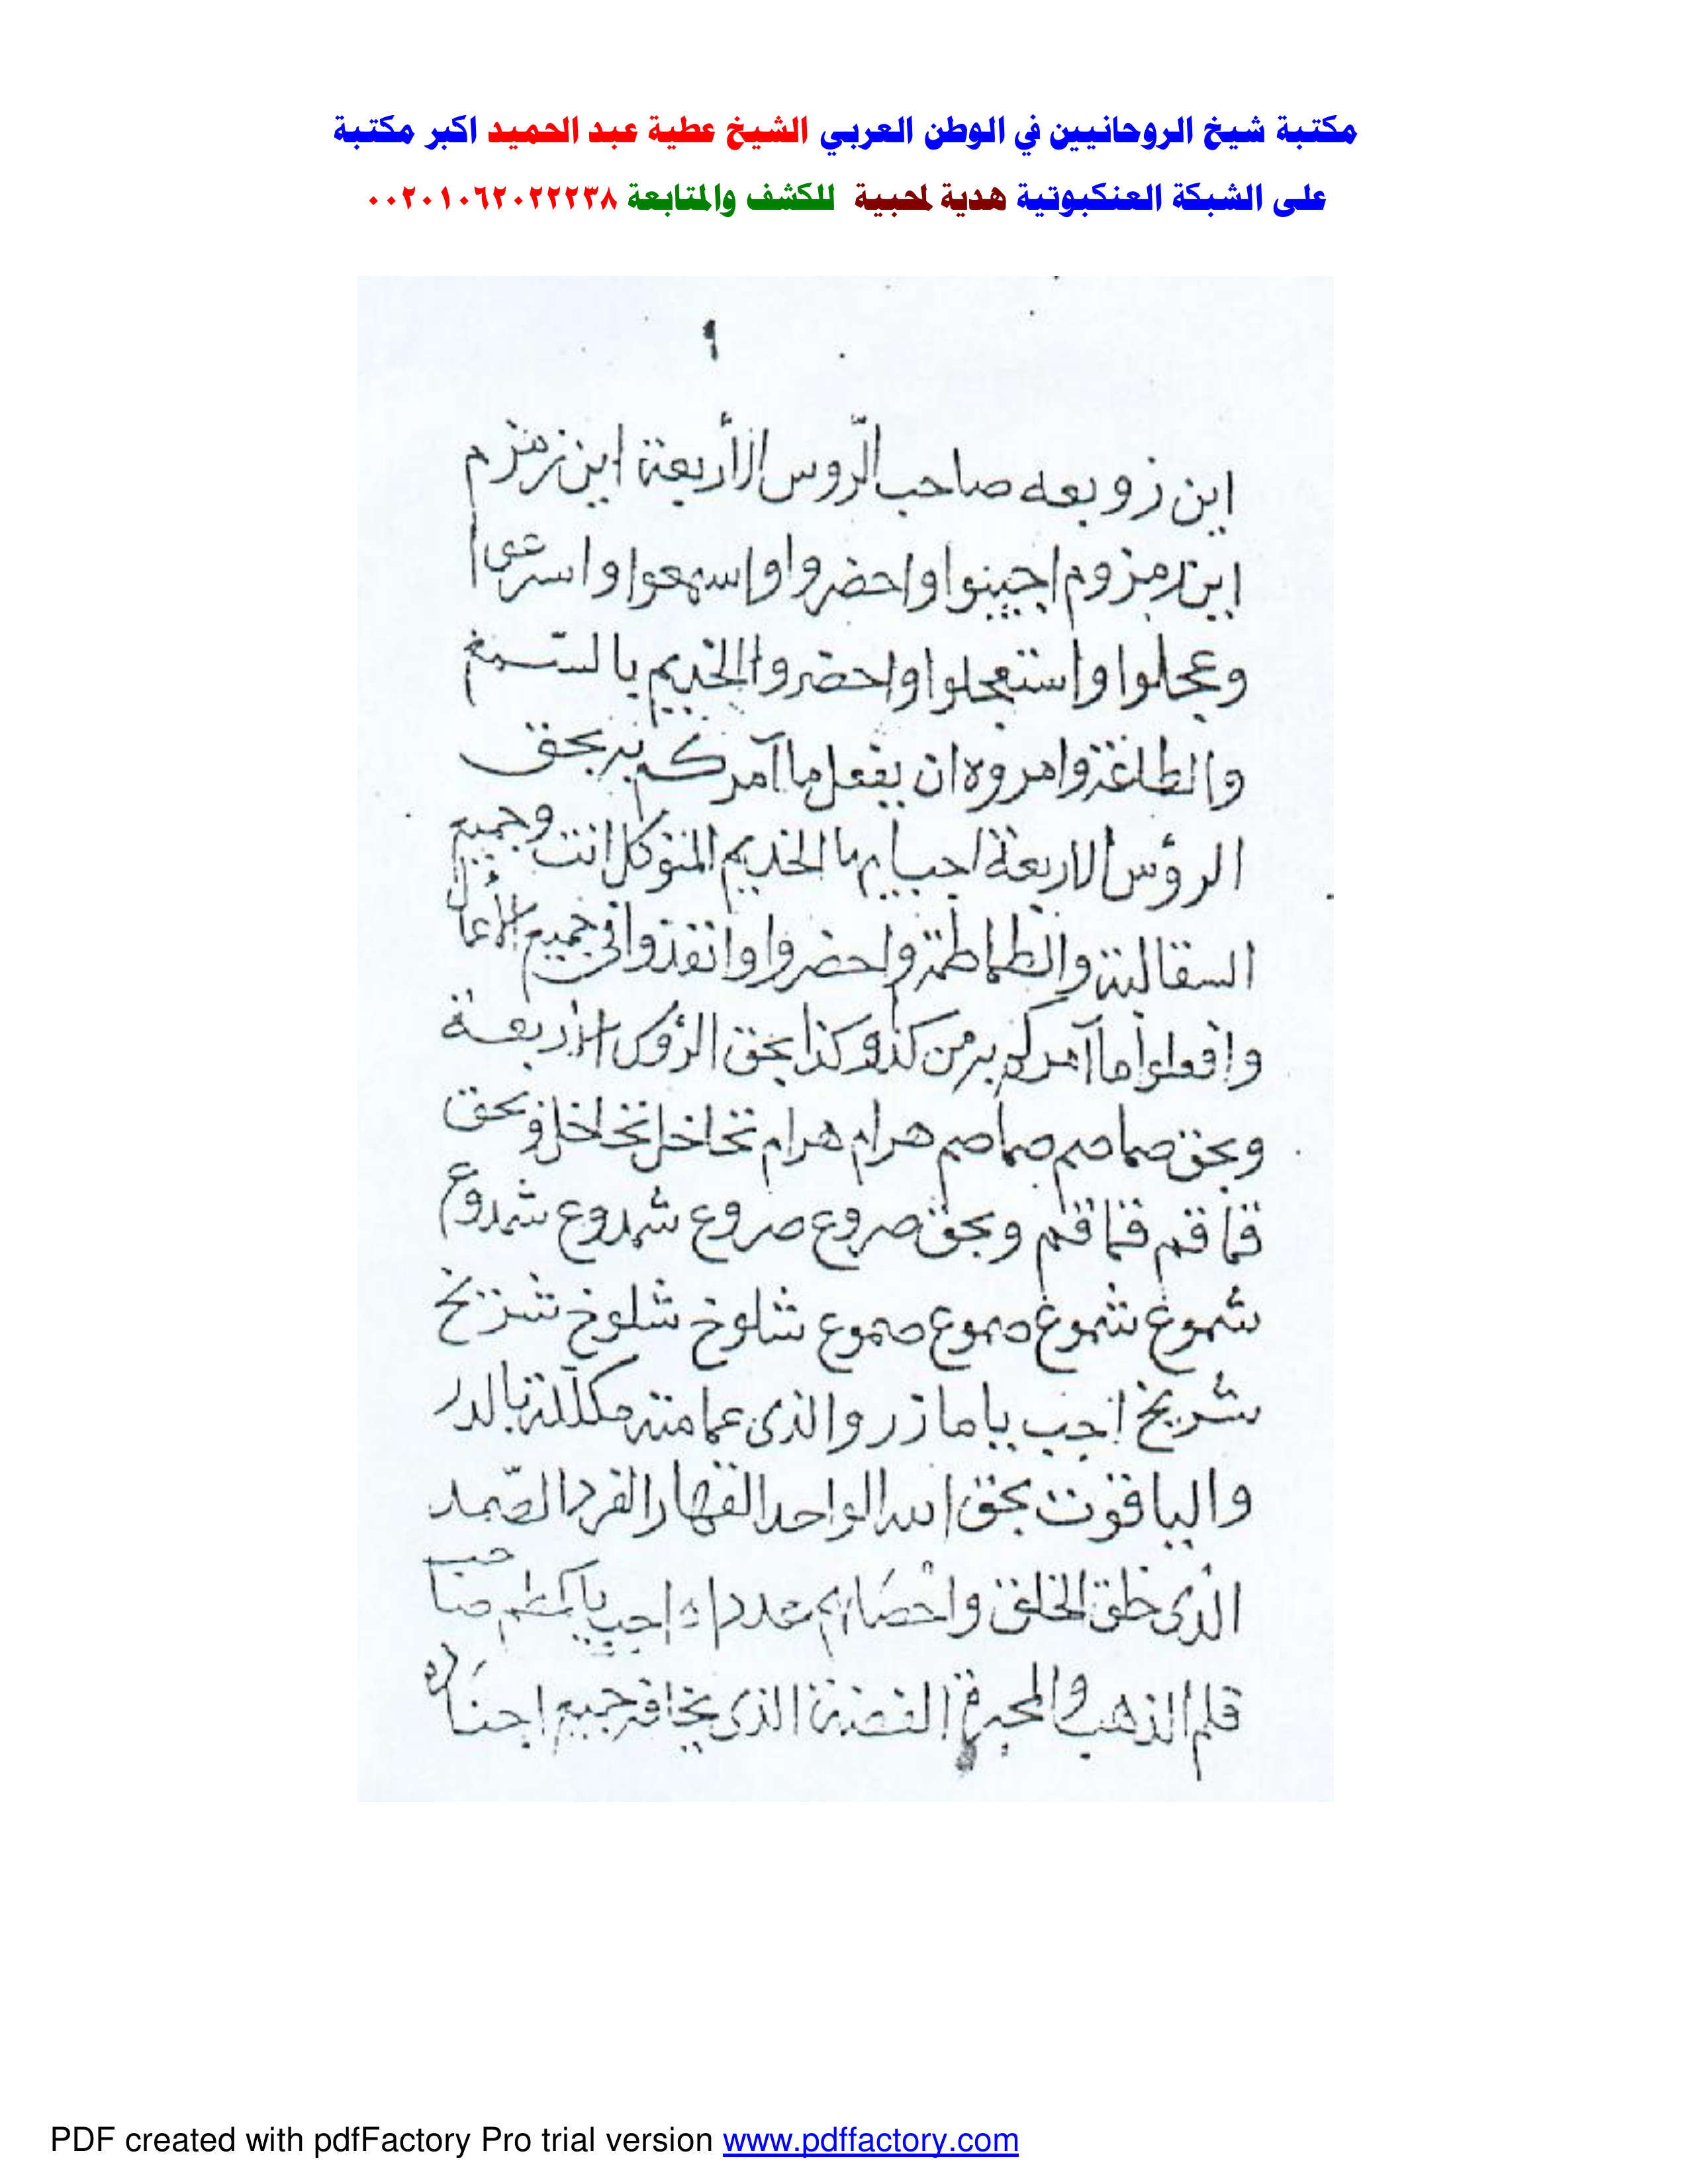 مكتبة شيخ الروحانيين في الوطن العربي الشيخ عطية عبد الحميد اكبر مكتبة
على الشبكة العنكبوتية هدية لمحبية للكشف والمتابعة ٠٠٢٠١٠٦٢٠٢٢٢٣٨
٩
اين زوبعه صاحب الرّوس الأربعة اين زمزم
اين زمزوم اجيبوا واحضروا واسمعوا واسرعوا
وعجلوا واستعجلوا واحضروا الخديم بالسّمع
والطاعة وامروه ان يفعل ما آمركم به بحق
الرؤس الاربعة اجب ايها الخديم المتوكل انت وجميع
السقالبة والطماطمة واحضروا وانفذوا في جميع الأعمال
وافعلوا ما آمركم به من كذا وكذا بحق الرؤس الأربعة
وبحق صماصم صماصم هرام هرام تخاخل تخاخل وبحق
قماقم قماقم وبحق صروع صروع شمدوع شمدوع
شموغ شموغ صموع صموع شلوخ شلوخ شزيخ
شريخ اجب يا مازر والذى عمامته مكللة بالدر
والياقوت بحق الله الواحد القهار الفرد الصّمد
الذى خلق الخلق واحصاهم عددا اجب يا صاحب
قلم الذهب والمحبرة الفضة الذى يخافه جميع اجناد